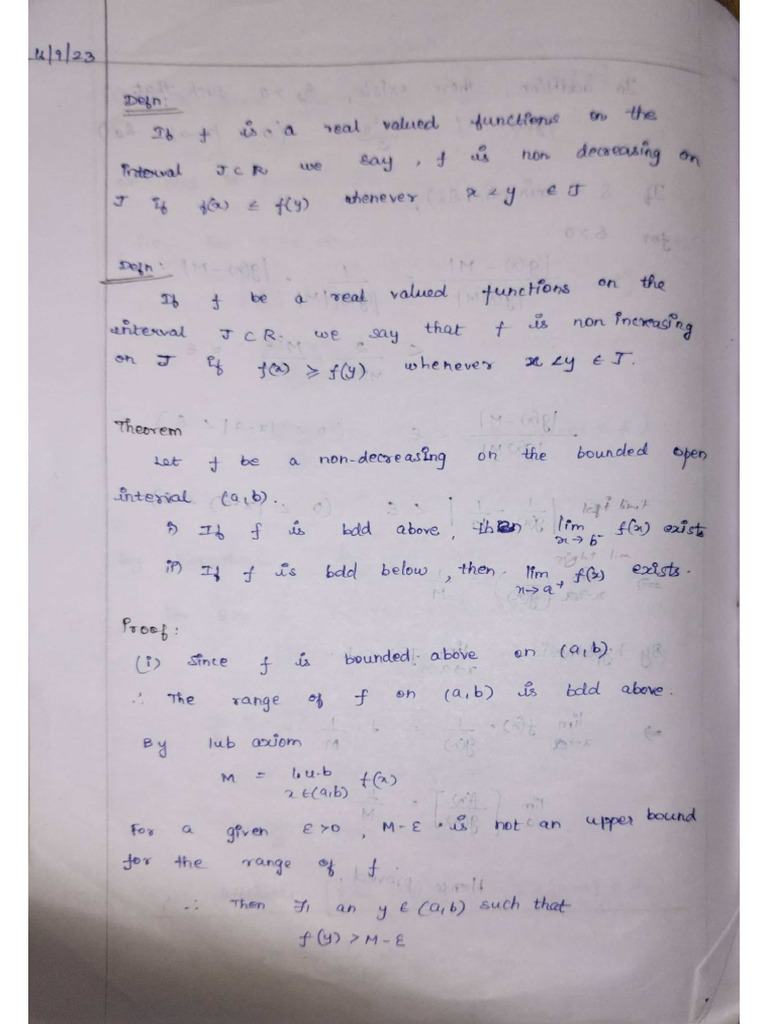 4/9/23
Defn:
If f is a real valued functions on the
interval J ⊂ R we say, f is non decreasing on
J if f(x) ≤ f(y) whenever x < y ∈ J
Defn:
If f be a real valued functions on the
interval J ⊂ R. we say that f is non increasing
on J if f(x) ≥ f(y) whenever x < y ∈ J.
Theorem
Let f be a non-decreasing on the bounded open
interval (a,b).
i) If f is bdd above, then lim x→b⁻ f(x) exists
ii) If f is bdd below, then lim x→a⁺ f(x) exists.
Proof:
(i) Since f is bounded above on (a,b)
∴ The range of f on (a,b) is bdd above.
By lub axiom
M = l.u.b x∈(a,b) f(x)
For a given ε>0, M-ε is not an upper bound
for the range of f
∴ Then ∃ an y ∈ (a,b) such that
f(y) > M-ε